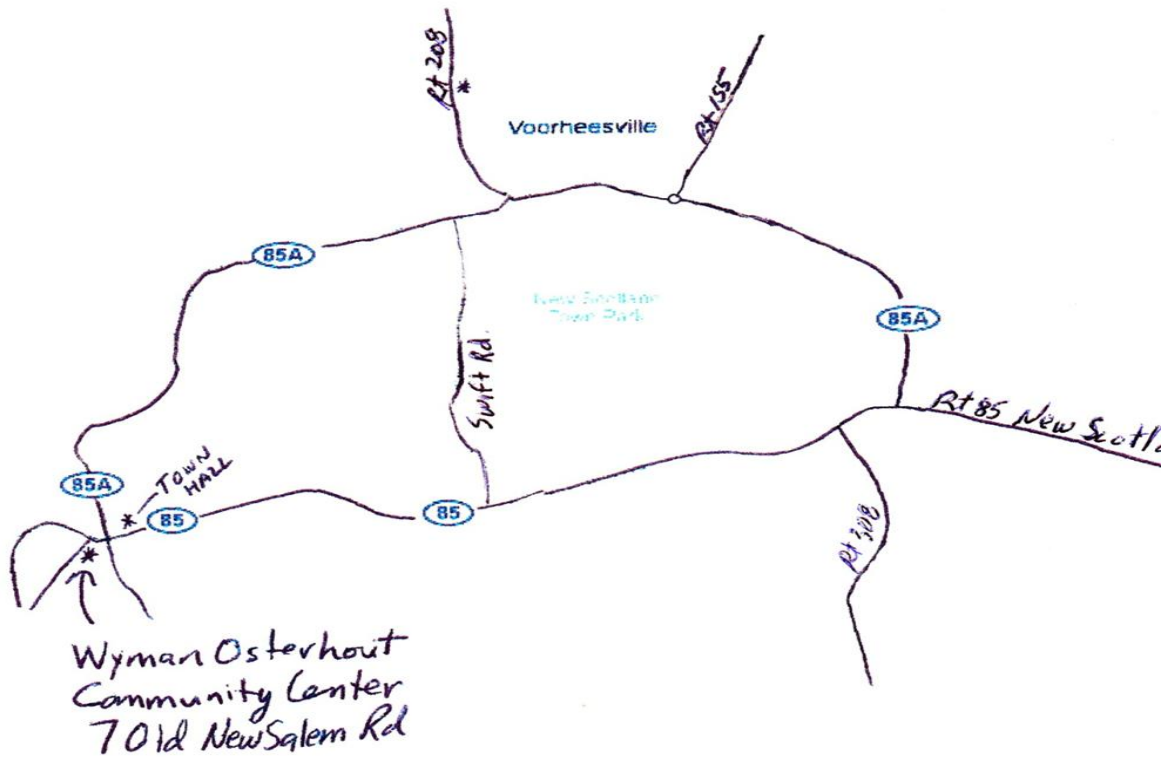 Rt 208
*
Voorheesville
Rt 155
85A
New Scotland
Town Park
85A
Swift Rd.
Rt 85 New Scotla
85A
* TOWN
HALL
85
85
Rt 308
*
Wyman Osterhout
Community Center
7 Old New Salem Rd